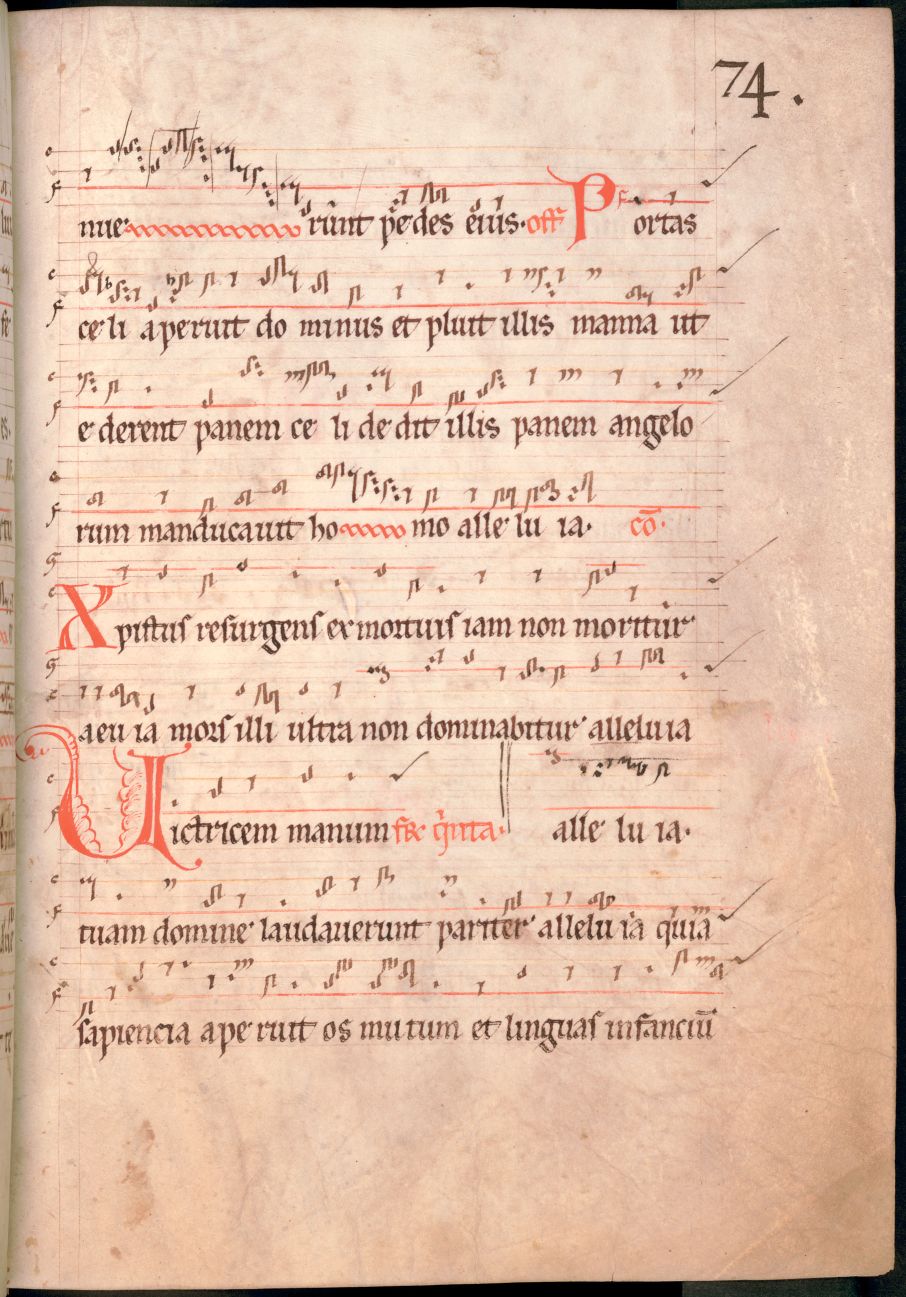 74.
nue rūnt pedes eius. off Portas
celi aperuit dominus et pluit illis manna ut
ederent panem celi dedit illis panem angelo
rum manducauit homo alleluia. cō.
Xpistus resurgens ex mortuis iam non moritur
aeuia mors illi ultra non dominabitur alleluia
Uictricem manum fr̄ quīta. alleluia.
tuam domine laudauerunt pariter alleluia quia
sapiencia aperuit os mutum et linguas infanciū